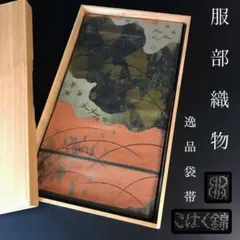 服部織物
逸品袋帯
こはく錦